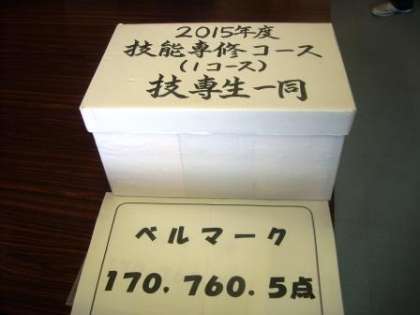 2015年度
技能専修コース
(1コース)
技専生一同
ベルマーク
170,760.5点